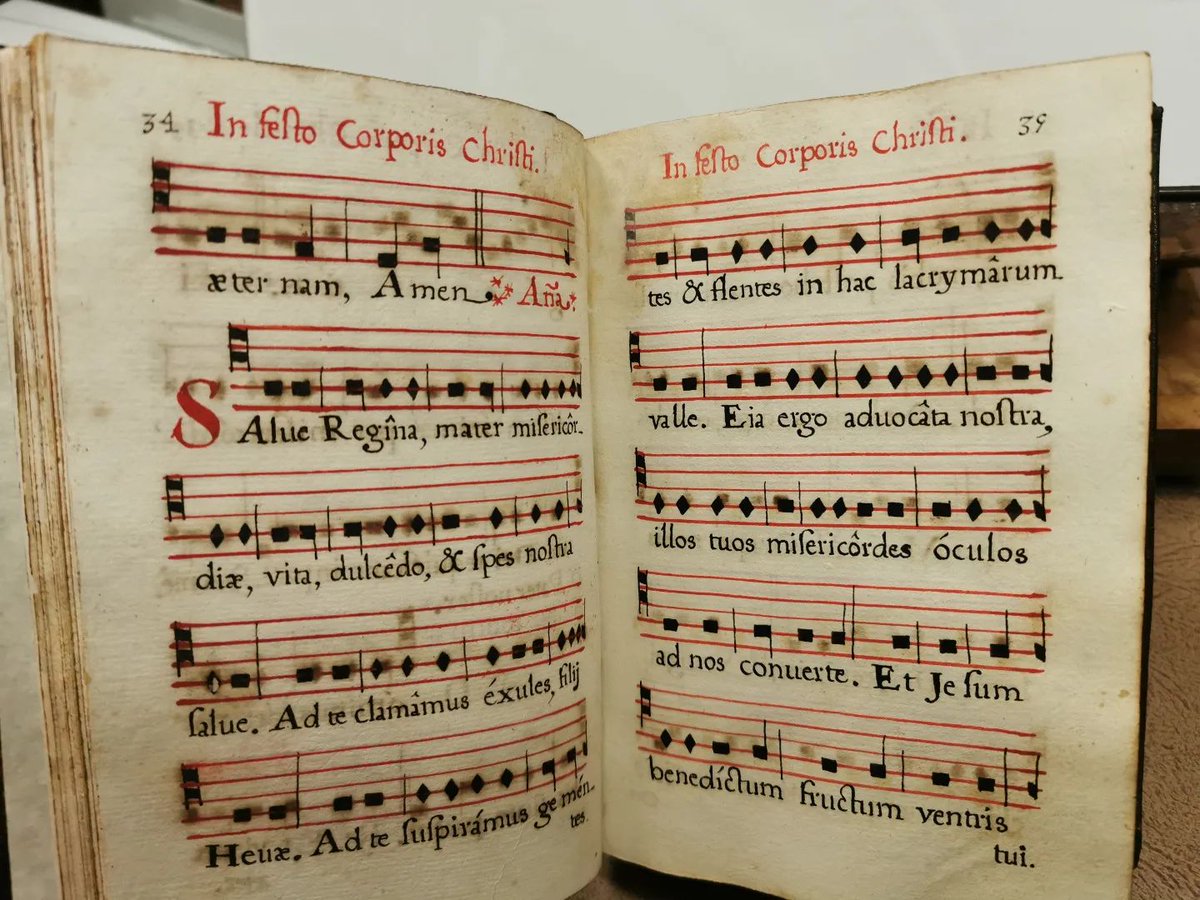 34 In feſto Corporis Chriſti.
æter nam, Amen, Aña.
SAlue Regîna, mater miſericôr-
diæ, vita, dulcêdo, & ſpes noſtra
ſalue. Ad te clamâmus éxules, filij
Heuæ. Ad te ſuſpirámus ge mén-
tes.
In feſto Corporis Chriſti. 39
tes & flentes in hac lacrymârum
valle. Eia ergo aduocâta noſtra,
illos tuos miſericôrdes óculos
ad nos conuerte. Et Jeſum
benedíctum fructum ventris
tui.